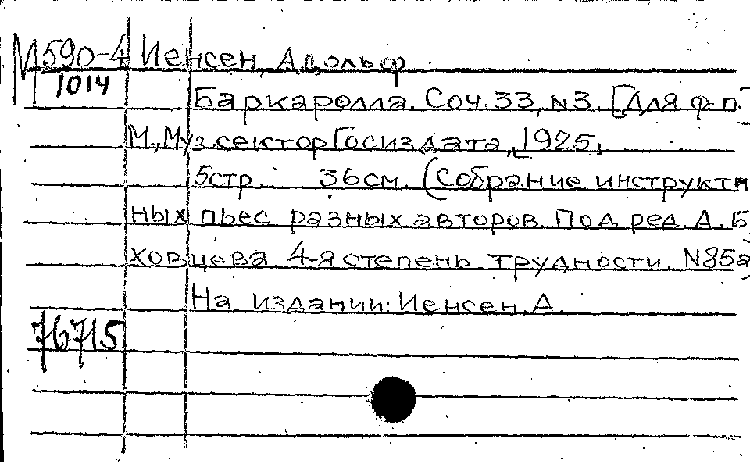 М590-4 Иенсен, Адольф
1014
Баркаролла. Соч. 33, N3. [Для ф-п.]
М., Муз. сектор Госиздата, 1925.
5стр. 36см. (Собрание инструктив
ных пьес разных авторов. Под ред. А. Б
ховцева 4-я степень трудности. N85а)
На издании: Иенсен. А.
76715